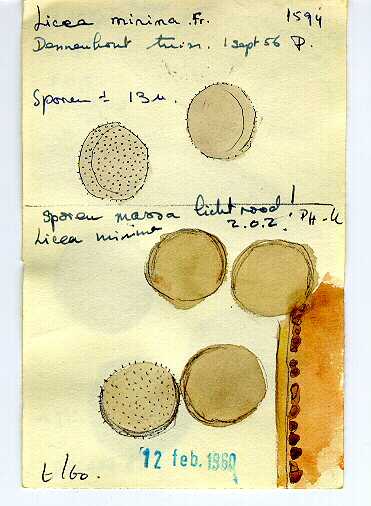 Licea minima Fr. 1594
Dennenhout tuin. 1 sept 56 P.
Sporen ± 13 µ.
Sporen massa licht rood!
Licea minima Z.O.Z.
12 feb. 1960